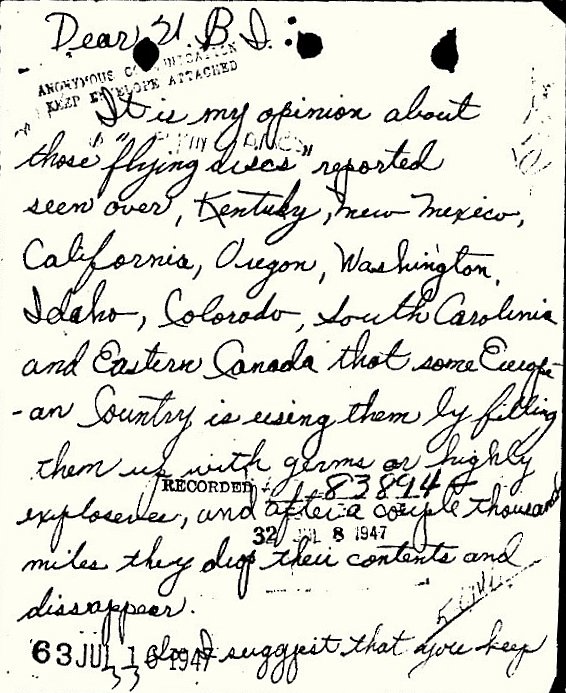 Dear F B I :
ANONYMOUS COMMUNICATION
KEEP ENVELOPE ATTACHED
It is my opinion about
those "flying discs" reported
seen over, Kentuky, new mexico,
California, Oregon, Washington,
Idaho, Colorado, South Carolinia
and Eastern Canada that some Europe-
-an Country is using them by filling
them up with germs or highly
RECORDED 83894
exploseves, and after a couple thousand
32 JUL 8 1947
miles they drop their contents and
dissappear.
63 JUL 16 1947 suggest that you keep
33